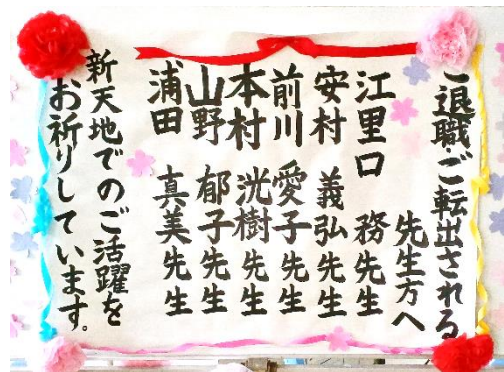 ご退職ご転出される
先生方へ
江里口 務先生
安村 義弘先生
前川 愛子先生
本村 洸樹先生
山野 郁子先生
浦田 真美先生
新天地でのご活躍を
お祈りしています。